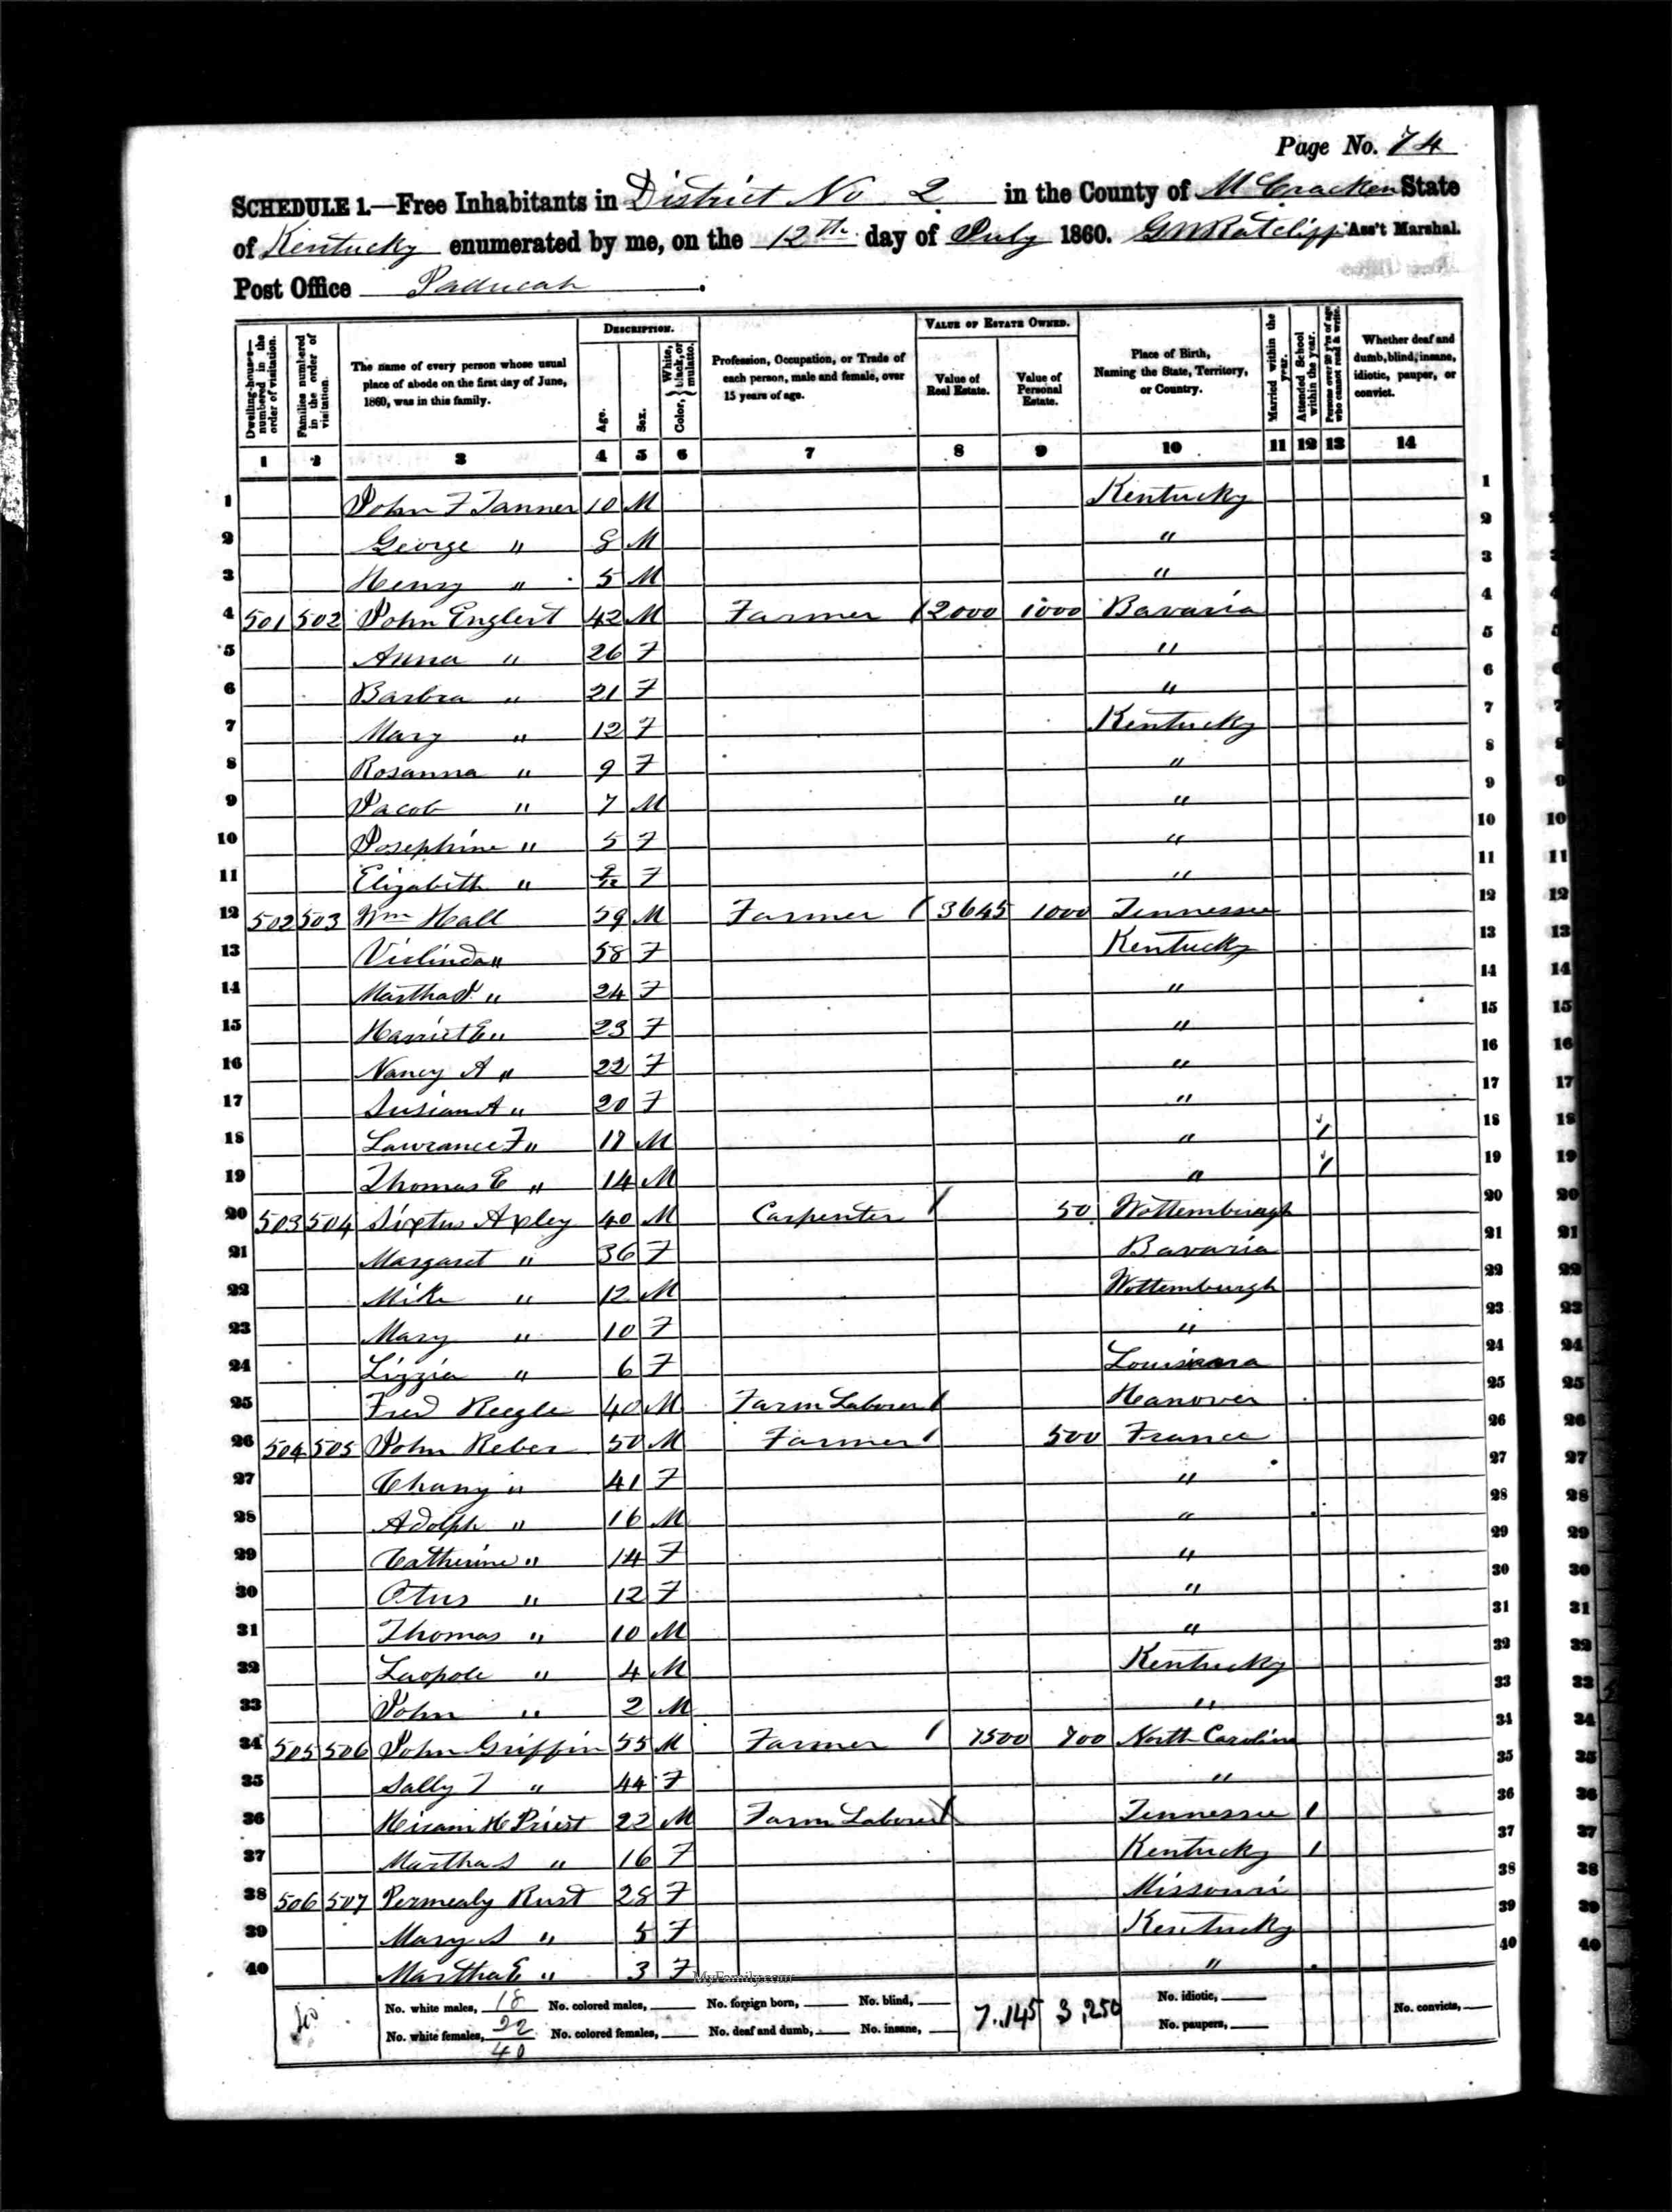 Page No. 74
SCHEDULE 1.—Free Inhabitants in District No 2 in the County of McCracken State
of Kentucky enumerated by me, on the 12th day of July 1860. G W Ratcliff Ass't Marshal.
Post Office Paducah.
Dwelling-houses—numbered in the order of visitation. Families numbered in the order of visitation. The name of every person whose usual place of abode on the first day of June, 1860, was in this family. DESCRIPTION. Age. Sex. Color, { White, black, or mulatto. Profession, Occupation, or Trade of each person, male and female, over 15 years of age. VALUE OF ESTATE OWNED. Value of Real Estate. Value of Personal Estate. Place of Birth, Naming the State, Territory, or Country. Married within the year. Attended School within the year. Persons over 20 y'rs of age who cannot read & write. Whether deaf and dumb, blind, insane, idiotic, pauper, or convict.
1 2 3 4 5 6 7 8 9 10 11 12 13 14
1 John F Tanner 10 M Kentucky 1
2 George " 8 M " 2
3 Henry " 5 M " 3
4 501 502 John Englert 42 M Farmer / 2000 1000 Bavaria 4
5 Anna " 26 F " 5
6 Barbra " 21 F " 6
7 Mary " 12 F Kentucky 7
8 Rosanna " 9 F " 8
9 Jacob " 7 M " 9
10 Josephine " 5 F " 10
11 Elizabeth " F " 11
12 502 503 Wm Hall 59 M Farmer / 3645 1000 Tennessee 12
13 Virlinda " 58 F Kentucky 13
14 Martha J " 24 F " 14
15 Harriet E " 23 F " 15
16 Nancy A " 22 F " 16
17 Susian A " 20 F " 17
18 Lawrance F " M " / 18
19 Thomas E " 14 M " / 19
20 503 504 Sixtus Apley 40 M Carpenter / 50 Wottemburgh 20
21 Margaret " 36 F Bavaria 21
22 Mike " 12 M Wottemburgh 22
23 Mary " 10 F " 23
24 Lizzia " 6 F Louisiana 24
25 Fred Reegle 40 M Farm Laborer / Hanover 25
26 504 505 John Reber 50 M Farmer / 500 France 26
27 Chany " 41 F " 27
28 Adolph " 16 M " 28
29 Catherine " 14 F " 29
30 Otus " 12 F " 30
31 Thomas " 10 M " 31
32 Leopole " 4 M Kentucky 32
33 John " 2 M " 33
34 505 506 John Griffin 55 M Farmer / 1500 700 North Carolina 34
35 Sally T " 44 F " 35
36 Hiram H Priest 22 M Farm Laborer / Tennessee / 36
37 Martha S " 16 F Kentucky / 37
38 506 507 Permealy Rust 28 F Missouri 38
39 Mary S " 5 F Kentucky 39
40 Martha E " 3 F " 40
MyFamily.com
No. white males, 18 No. colored males, No. foreign born, No. blind, 7.145 3,250 No. idiotic, No. convicts,
No. white females, 22 No. colored females, No. deaf and dumb, No. insane, No. paupers,
40